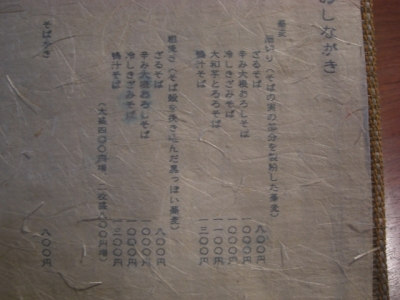 おしながき
蕎麦
（そばの実の部分を製粉した蕎麦）
ざるそば 八〇〇円
辛み大根おろしそば 一〇〇〇円
冷しきざみそば 一〇〇〇円
大和芋とろろそば 一一〇〇円
鴨汁そば 一三〇〇円
黒っぽい蕎麦）
ざるそば 八〇〇円
辛み大根おろしそば 一〇〇〇円
冷しきざみそば 一〇〇〇円
鴨汁そば 一三〇〇円
（大盛四〇〇円増
そばがき 八〇〇円